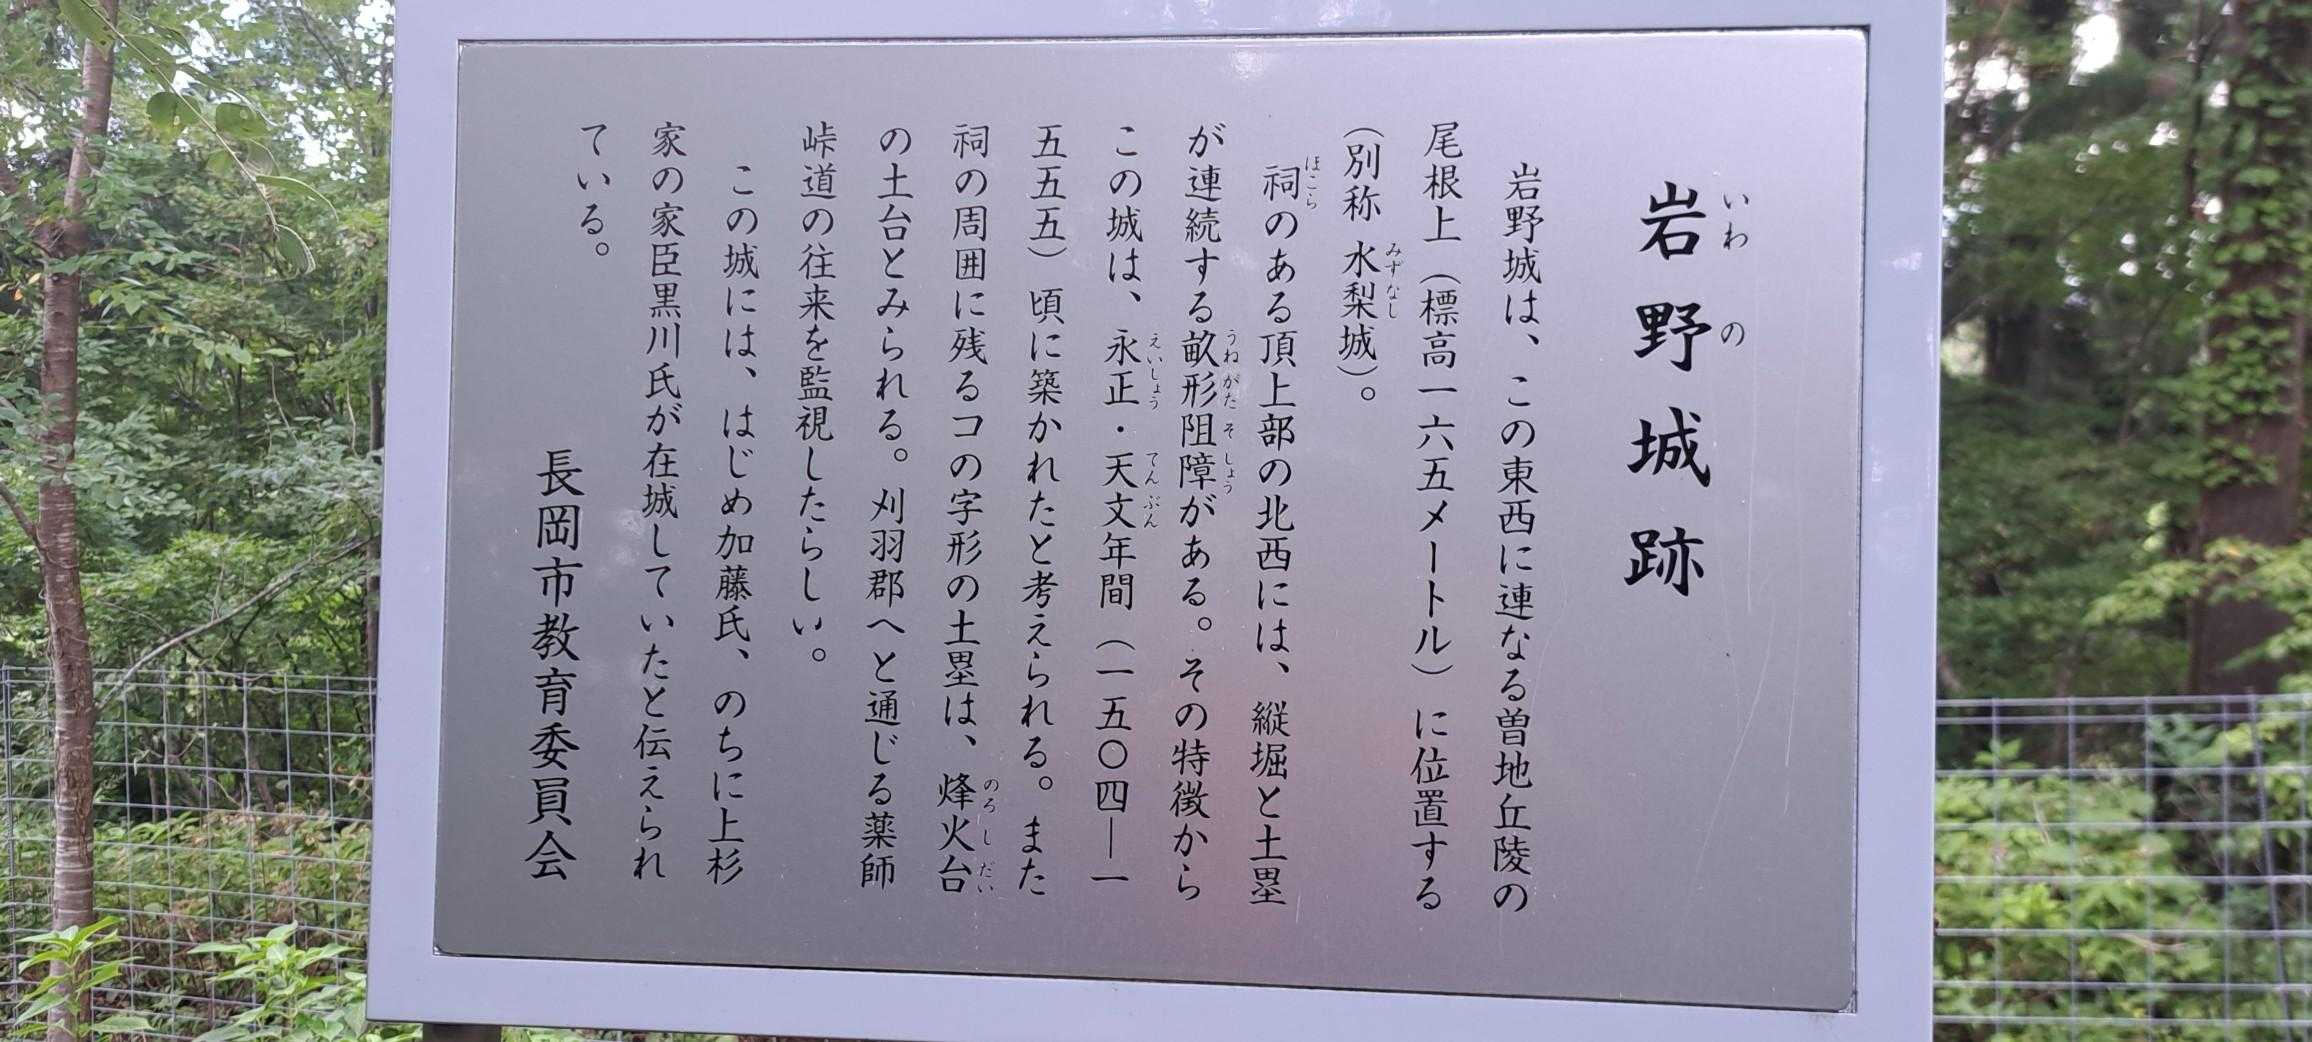 岩野城跡
いわの
岩野城は、この東西に連なる曽地丘陵の
尾根上（標高一六五メートル）に位置する
（別称 水梨城）。
みずなし
祠のある頂上部の北西には、縦堀と土塁
ほこら
が連続する畝形阻障がある。その特徴から
うねがたそしょう
この城は、永正・天文年間（一五〇四―一
えいしょう てんぶん
五五五）頃に築かれたと考えられる。また
祠の周囲に残るコの字形の土塁は、烽火台
のろしだい
の土台とみられる。刈羽郡へと通じる薬師
峠道の往来を監視したらしい。
この城には、はじめ加藤氏、のちに上杉
家の家臣黒川氏が在城していたと伝えられ
ている。
長岡市教育委員会